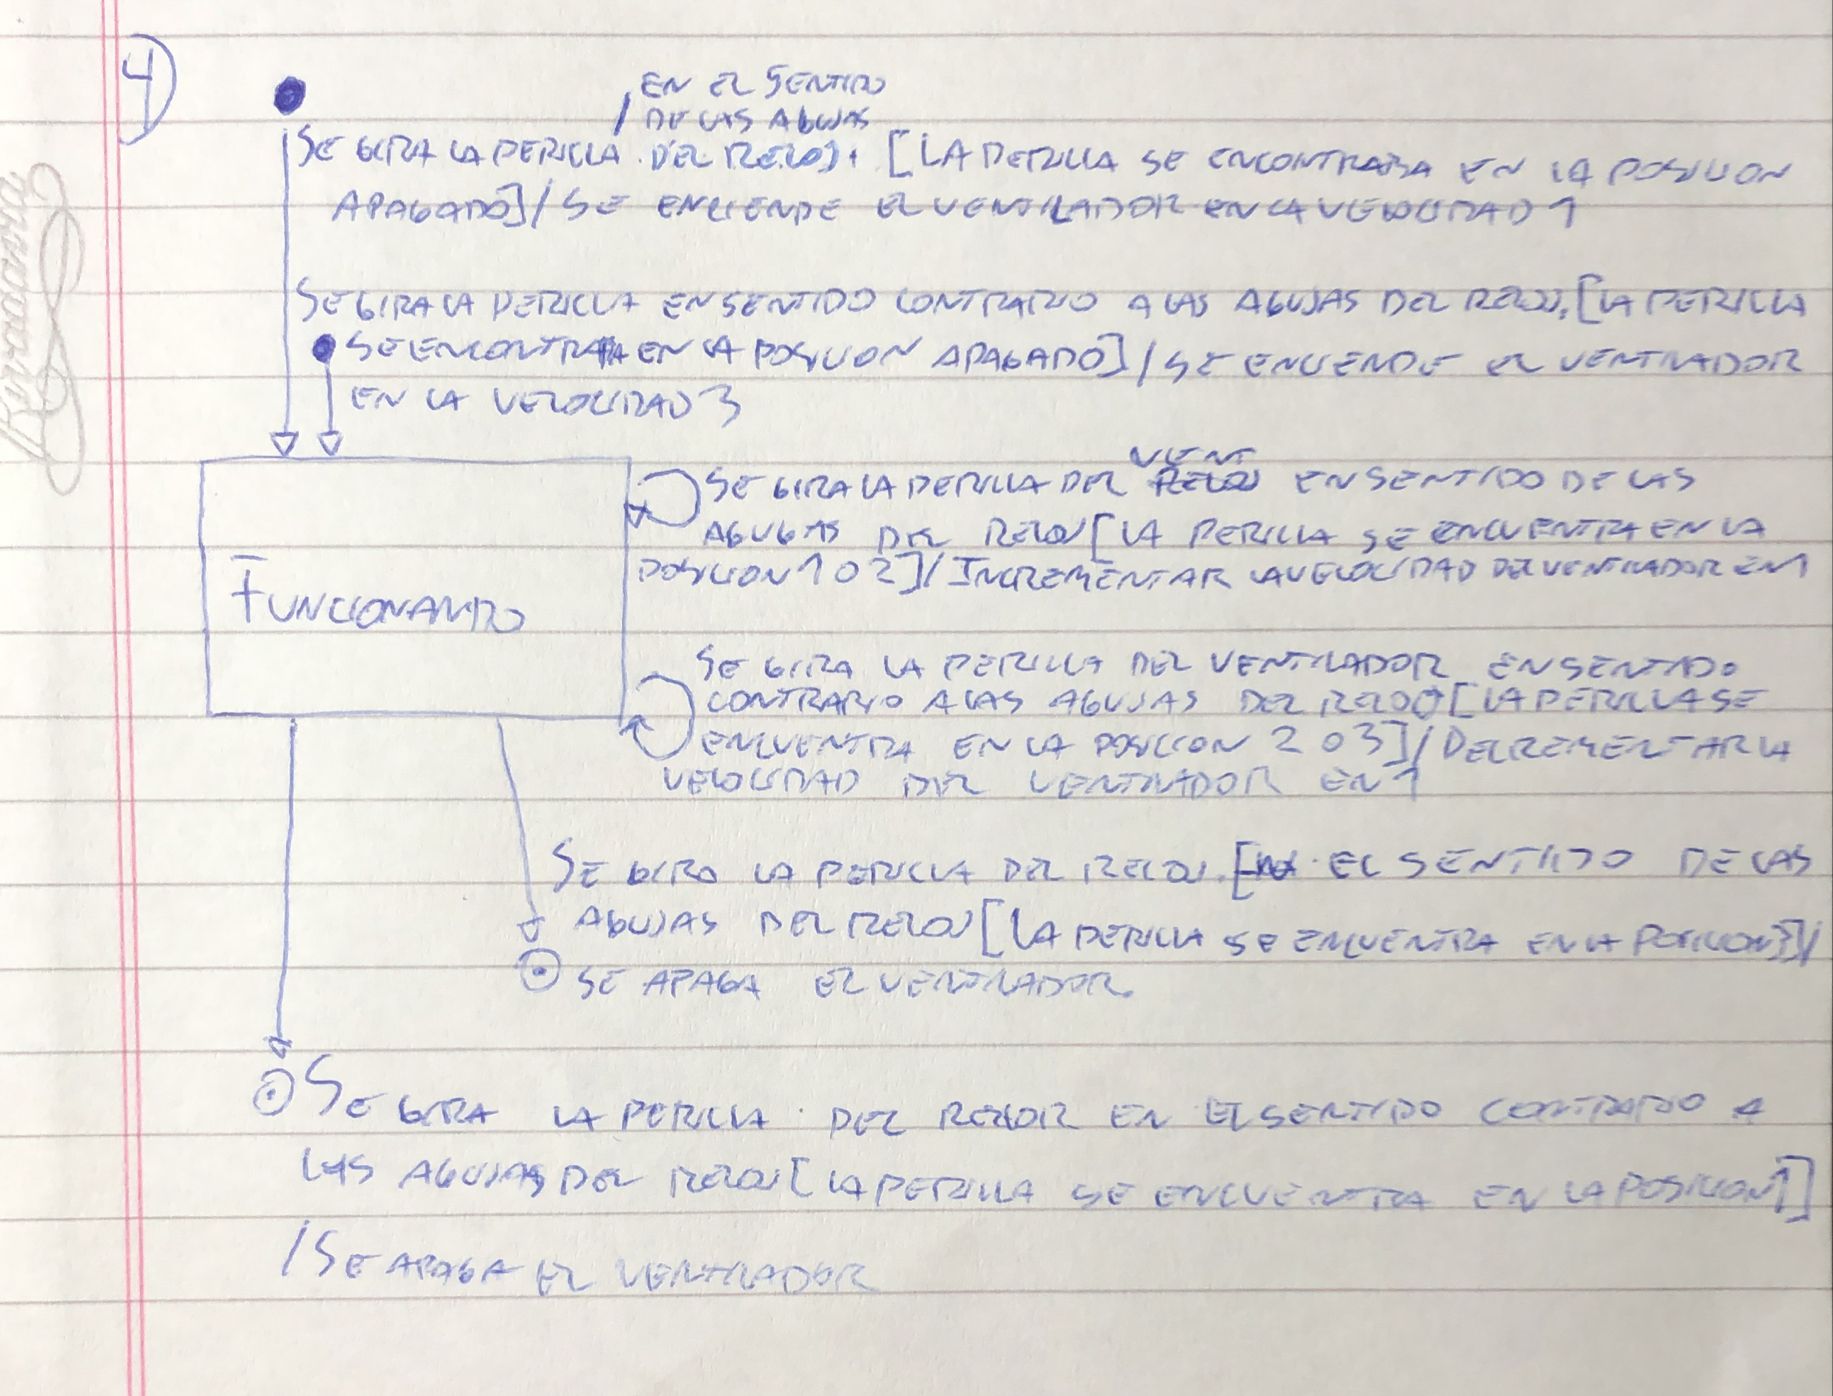 4
EN EL SENTIDO
/ DE LAS AGUJAS
SE GIRA LA PERILLA DEL RELOJ. [LA PERILLA SE ENCONTRABA EN LA POSICION
APAGADO]/SE ENCIENDE EL VENTILADOR EN LA VELOCIDAD 1
SE GIRA LA PERILLA EN SENTIDO CONTRARIO A LAS AGUJAS DEL RELOJ, [LA PERILLA
SE ENCONTRABA EN LA POSICION APAGADO]/SE ENCIENDE EL VENTILADOR
EN LA VELOCIDAD 3
VENT
SE GIRA LA PERILLA DEL RELOJ EN SENTIDO DE LAS
AGUGAS DEL RELOJ [LA PERILLA SE ENCUENTRA EN LA
POSICION 1 O 2]/INCREMENTAR LA VELOCIDAD DEL VENTILADOR EN 1
FUNCIONANDO
SE GIRA LA PERILLA DEL VENTILADOR EN SENTIDO
CONTRARIO A LAS AGUJAS DEL RELOJ [LA PERILLA SE
ENCUENTRA EN LA POSICION 2 O 3]/DECREMENTAR LA
VELOCIDAD DEL VENTILADOR EN 1
SE GIRO LA PERILLA DEL RELOJ. EL SENTIDO DE LAS
AGUJAS DEL RELOJ [LA PERILLA SE ENCUENTRA EN LA POSICION 3]/
SE APAGA EL VENTILADOR.
SE GIRA LA PERILLA DEL RELOR EN EL SENTIDO CONTRARIO A
LAS AGUJAS DEL RELOJ [LA PERILLA SE ENCUENTRA EN LA POSICION 1]
/SE APAGA EL VENTILADOR
Rivadavia